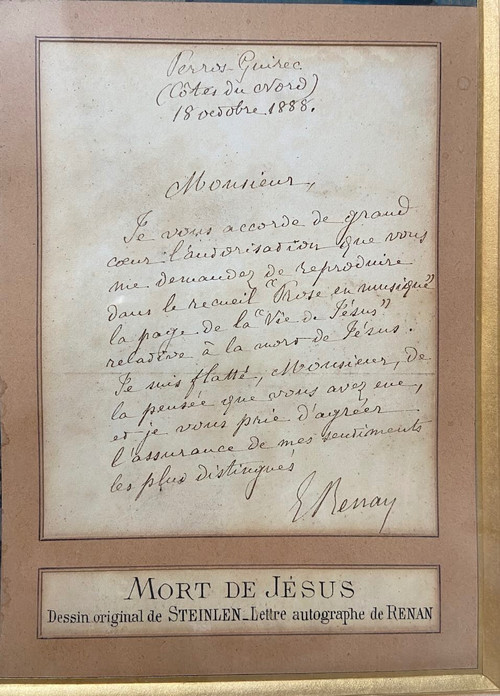 Perros-Guirec
(Côtes du Nord)
18 octobre 1888.
Monsieur,
Je vous accorde de grand
cœur l'autorisation que vous
me demandez de reproduire
dans le recueil "Prose en musique"
la page de la "Vie de Jésus"
relative à la mort de Jésus.
Je suis flatté, Monsieur, de
la pensée que vous avez eue,
et je vous prie d'agréer
l'assurance de mes sentiments
les plus distingués
E Renan
MORT DE JÉSUS
Dessin original de STEINLEN_Lettre autographe de RENAN